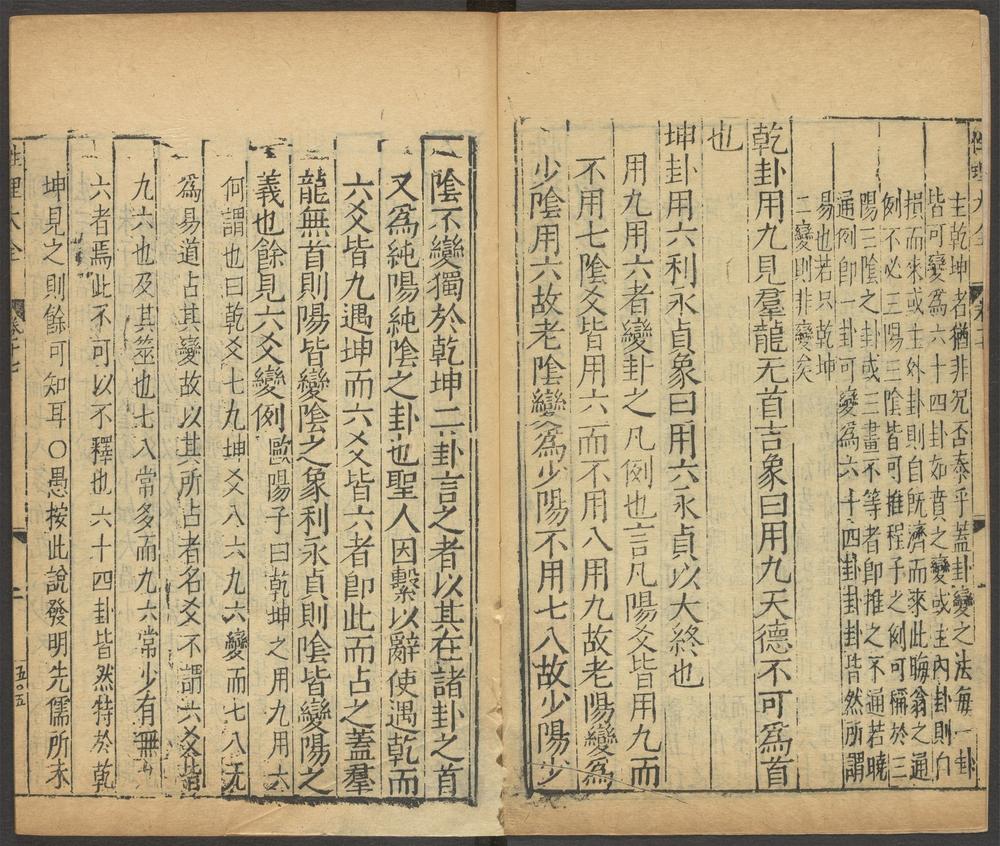 主乾坤者猶非況否泰乎蓋卦變之法每一卦
皆可變為六十四卦如賁之變或主內卦則自
損而來或主外卦則自旣濟而來此晦翁之通
例不必三陽三陰皆可推程子之例可稱於三
陽三陰之卦或三畫不等者卽推之不通若曉
通例卽一卦可變為六十四卦卦卦皆然所謂
易也若只乾坤
二變則非變矣
乾卦用九見羣龍无首吉象曰用九天德不可爲首
也
坤卦用六利永貞象曰用六永貞以大終也
用九用六者變卦之凡例也言凡陽爻皆用九而
不用七陰爻皆用六而不用八用九故老陽變爲
少陰用六故老陰變爲少陽不用七八故少陽少
陰不變獨於乾坤二卦言之者以其在諸卦之首
又爲純陽純陰之卦也聖人因繫以辭使遇乾而
六爻皆九遇坤而六爻皆六者卽此而占之蓋羣
龍無首則陽皆變陰之象利永貞則陰皆變陽之
義也餘見六爻變例 歐陽子曰乾坤之用九用六
何謂也曰乾爻七九坤爻八六九六變而七八无
爲易道占其變故以其所占者名爻不謂六爻皆
九六也及其筮也七八常多而九六常少有無
六者焉此不可以不釋也六十四卦皆然特於乾
坤見之則餘可知耳〇愚按此說發明先儒所未
性理大全 二 五〇五